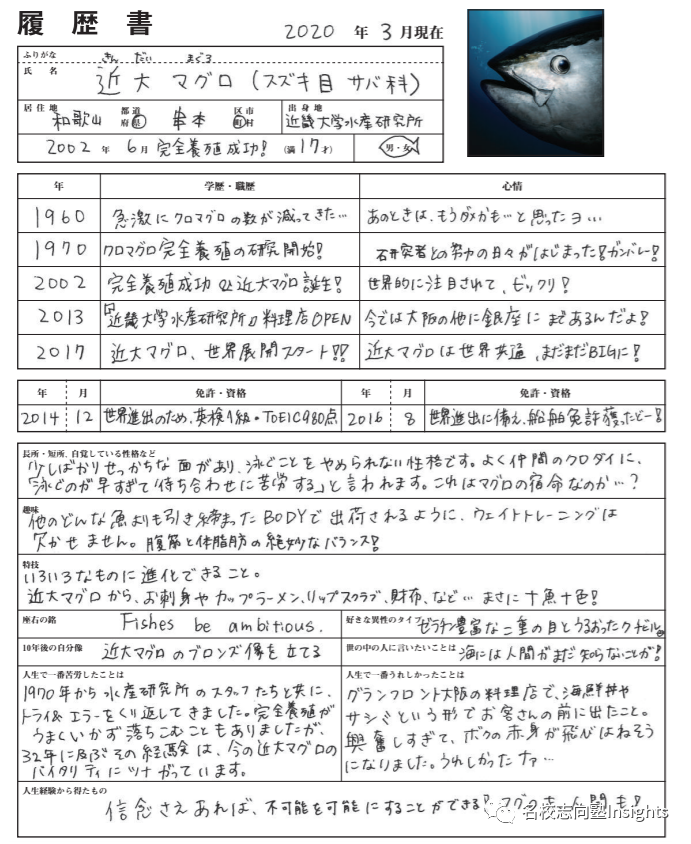 履歴書
2020 年 3 月現在
ふりがな きん だい まぐろ
氏名 近大 マグロ (スズキ目 サバ科)
居住地 和歌山 都道府県 串本 区市町村 出身地 近畿大学水産研究所
2002 年 6 月 完全養殖成功! (満 17 才) 男・女
年 学歴・職歴 心情
1960 急激にクロマグロの数が減ってきた… あのときは、もうダメかも…と思ったヨ…
1970 クロマグロ完全養殖の研究開始! 研究者との努力の日々がはじまった!ガンバレー!
2002 完全養殖成功 近大マグロ誕生! 世界的に注目されて、ビックリ!
2013 近畿大学水産研究所 料理店OPEN 今では大阪の他に銀座にまであるんだよ!
2017 近大マグロ、世界展開スタート!! 近大マグロは世界共通、まだまだBIGに!
年 月 免許・資格 年 月 免許・資格
2014 12 世界進出のため、英検1級・TOEIC980点 2016 8 世界進出に備え、船舶免許獲ったどー!
長所・短所、自覚している性格など
少しばかりせっかちな面があり、泳ぐことをやめられない性格です。よく仲間のクロダイに、
「泳ぐのが早すぎて待ち合わせに苦労する」と言われます。これはマグロの宿命なのか…?
趣味
他のどんな魚よりも引き締まったBODYで出荷されるように、ウェイトトレーニングは
欠かせません。腹筋と体脂肪の絶妙なバランス!
特技
いろいろなものに進化できること。
近大マグロから、お刺身やカップラーメン、リップスクラブ、財布、など… まさに十魚十色!
座右の銘 Fishes be ambitious. 好きな異性のタイプ ゼラチン豊富な二重の目とうるおったクチビル
10年後の自分像 近大マグロのブロンズ像を立てる 世の中の人に言いたいことは 海には人間がまだ知らないことが!
人生で一番苦労したことは 人生で一番うれしかったことは
1970年から水産研究所のスタッフたちと共に、 グランフロント大阪の料理店で、海鮮丼や
トライ&エラーをくり返してきました。完全養殖が サシミという形でお客さんの前に出たこと。
うまくいかず落ちこむこともありましたが、 興奮しすぎて、ボクの赤身が飛びはねそう
32年に及ぶその経験は、今の近大マグロの になりました。うれしかったナァ…
バイタリティにツナがっています。
人生経験から得たもの
信念さえあれば、不可能を可能にすることができる! マグロも、人間も!
名校志向塾Insights